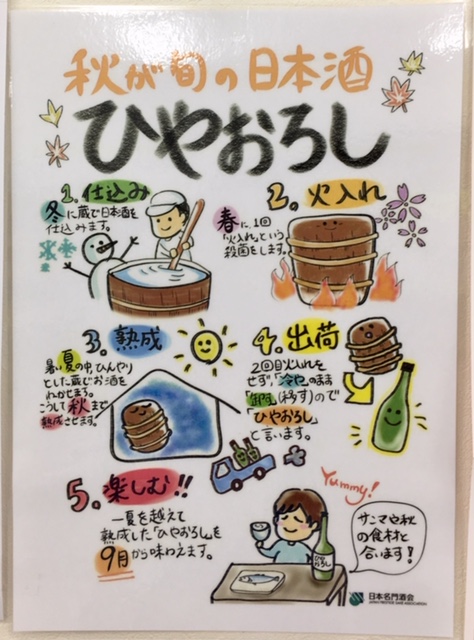 秋が旬の日本酒
ひやおろし
1. 仕込み
冬に蔵で日本酒を
仕込みます。
2. 火入れ
春に、1回
「火入れ」という
殺菌をします。
3. 熟成
暑い夏の中、ひんやり
とした蔵でお酒を
ねかせます。
こうして秋まで
熟成させます。
4. 出荷
2回目火入れを
せず、「冷や」のまま
「卸す」(移す)ので
「ひやおろし」
と言います。
5. 楽しむ!!
一夏を越えて
熟成した「ひやおろし」を
9月から味わえます。
Yummy!
サンマや秋
の食材と
合います!
ひや
おろし
日本名門酒会
JAPAN PRESTIGE SAKE ASSOCIATION